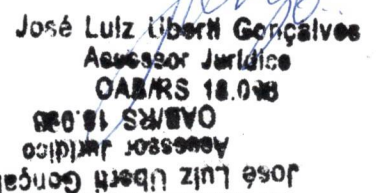 José Luiz Uberti Gonçalves
Assessor Jurídico
OAB/RS 18.0
OAB/RS 18.0
Assessor Jurídico
José Luiz Uberti Gonçal